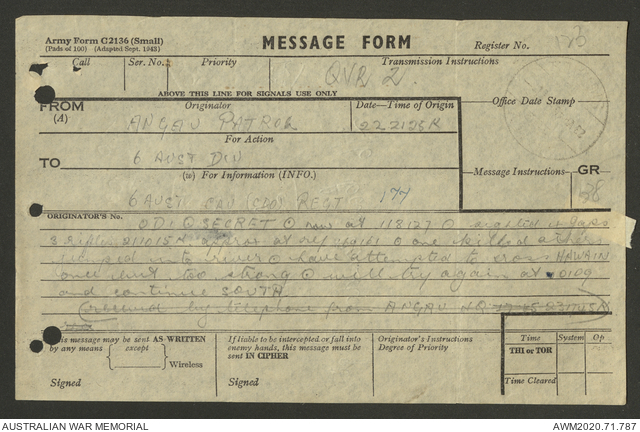 Army Form C2136 (Small)
(Pads of 100) (Adapted Sept. 1943)
MESSAGE FORM
Register No.
Call Ser. No. Priority Transmission Instructions
QVR 2
ABOVE THIS LINE FOR SIGNALS USE ONLY
FROM Originator Date—Time of Origin Office Date Stamp
(A) ANGAU PATROL 222123K
For Action
TO 6 AUST DIV
(W) For Information (INFO.) Message Instructions GR
6 AUST CAV (CDO) REGT 177
ORIGINATOR'S No.
SECRET now at 118127 sighted
3 rifles approx at ref one killed others
jumped into river have attempted to cross HAWAIN
once but too strong will try again at
and continue SOUTH
(received by telephone from ANGAU HQ
This message may be sent AS WRITTEN
by any means except
Wireless
Signed
If liable to be intercepted or fall into
enemy hands, this message must be
sent IN CIPHER
Signed
Originator's Instructions
Degree of Priority
Time System Op
THI or TOR
Time Cleared
AUSTRALIAN WAR MEMORIAL AWM2020.71.787